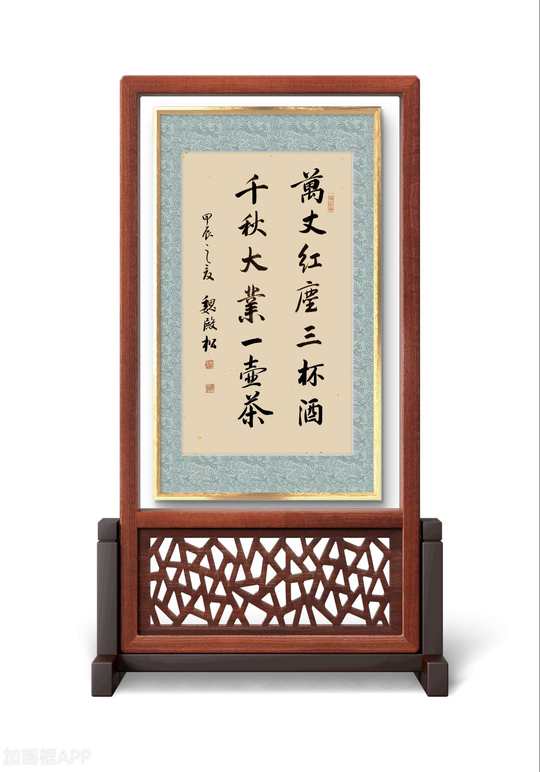 萬丈紅塵三杯酒
千秋大業一壺茶
甲辰之夏 魏啟松
加画框APP